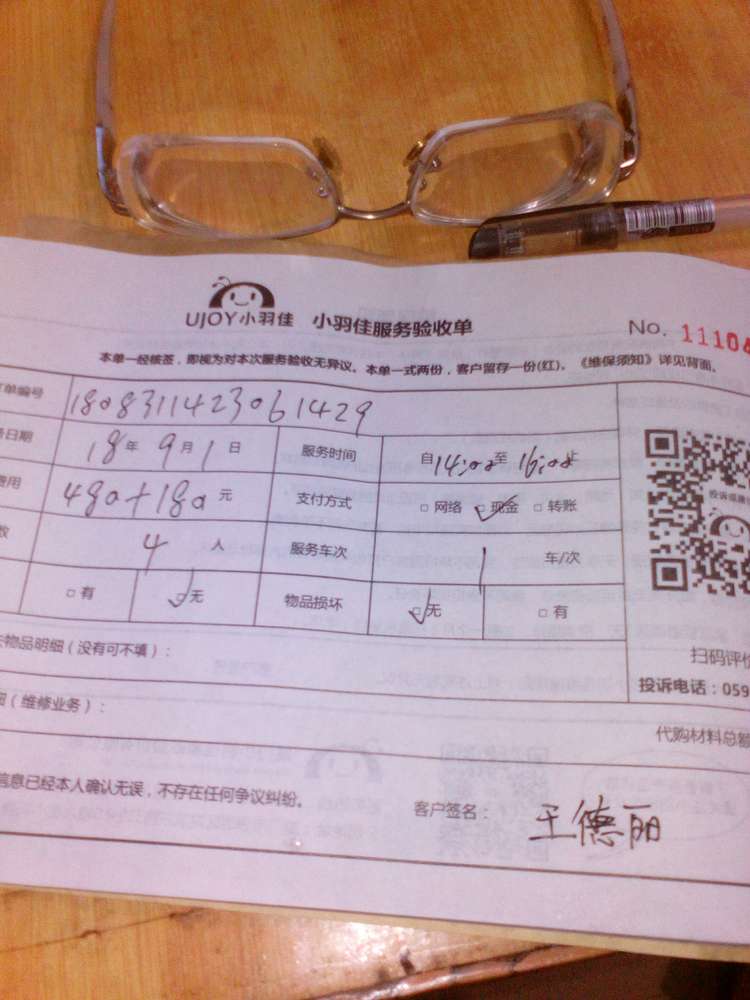 UJOY小羽佳 小羽佳服务验收单 No. 11104
本单一经核签，即视为对本次服务验收无异议。本单一式两份，客户留存一份(红)。《维保须知》详见背面。
单编号 180831142306 1429
日期 18年 9月 1日 服务时间 自14:00至16:00止
费用 480+180元 支付方式 □网络 □现金 □转账
数 4人 服务车次 1 车/次
□有 □无 物品损坏 □无 □有
物品明细（没有可不填）：
扫码评价
投诉电话：059
（维修业务）：
代购材料总额
信息已经本人确认无误，不存在任何争议纠纷。 客户签名： 王德丽